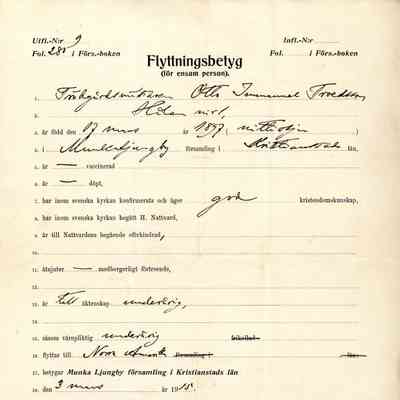 Utfl.-N:r 9 Infl.-N:r
Fol. 285 i Förs.-boken Fol. i Förs.-boken
Flyttningsbetyg
(för ensam person).
1. Trädgårdsmästaren Otto Immanuel Troedsson
2.
3. är född den 17 mars år 1897 (nittiosju)
4. i Munkaljungby församling i Kristianstads län,
5. är — vaccinerad
6. är — döpt,
7. har inom svenska kyrkan konfirmerats och äger god kristendomskunskap,
8. har inom svenska kyrkan begått H. Nattvard,
9. är till Nattvardens begående oförhindrad,
10.
11. åtnjuter — medborgerligt förtroende,
12.
13. är till äktenskap underårig,
14.
15. såsom värnpliktig underårig frikallad
16. flyttar till Norra Amerika församling i län
17. betygar Munka Ljungby församling i Kristianstads län
18. den 3 mars år 1915.